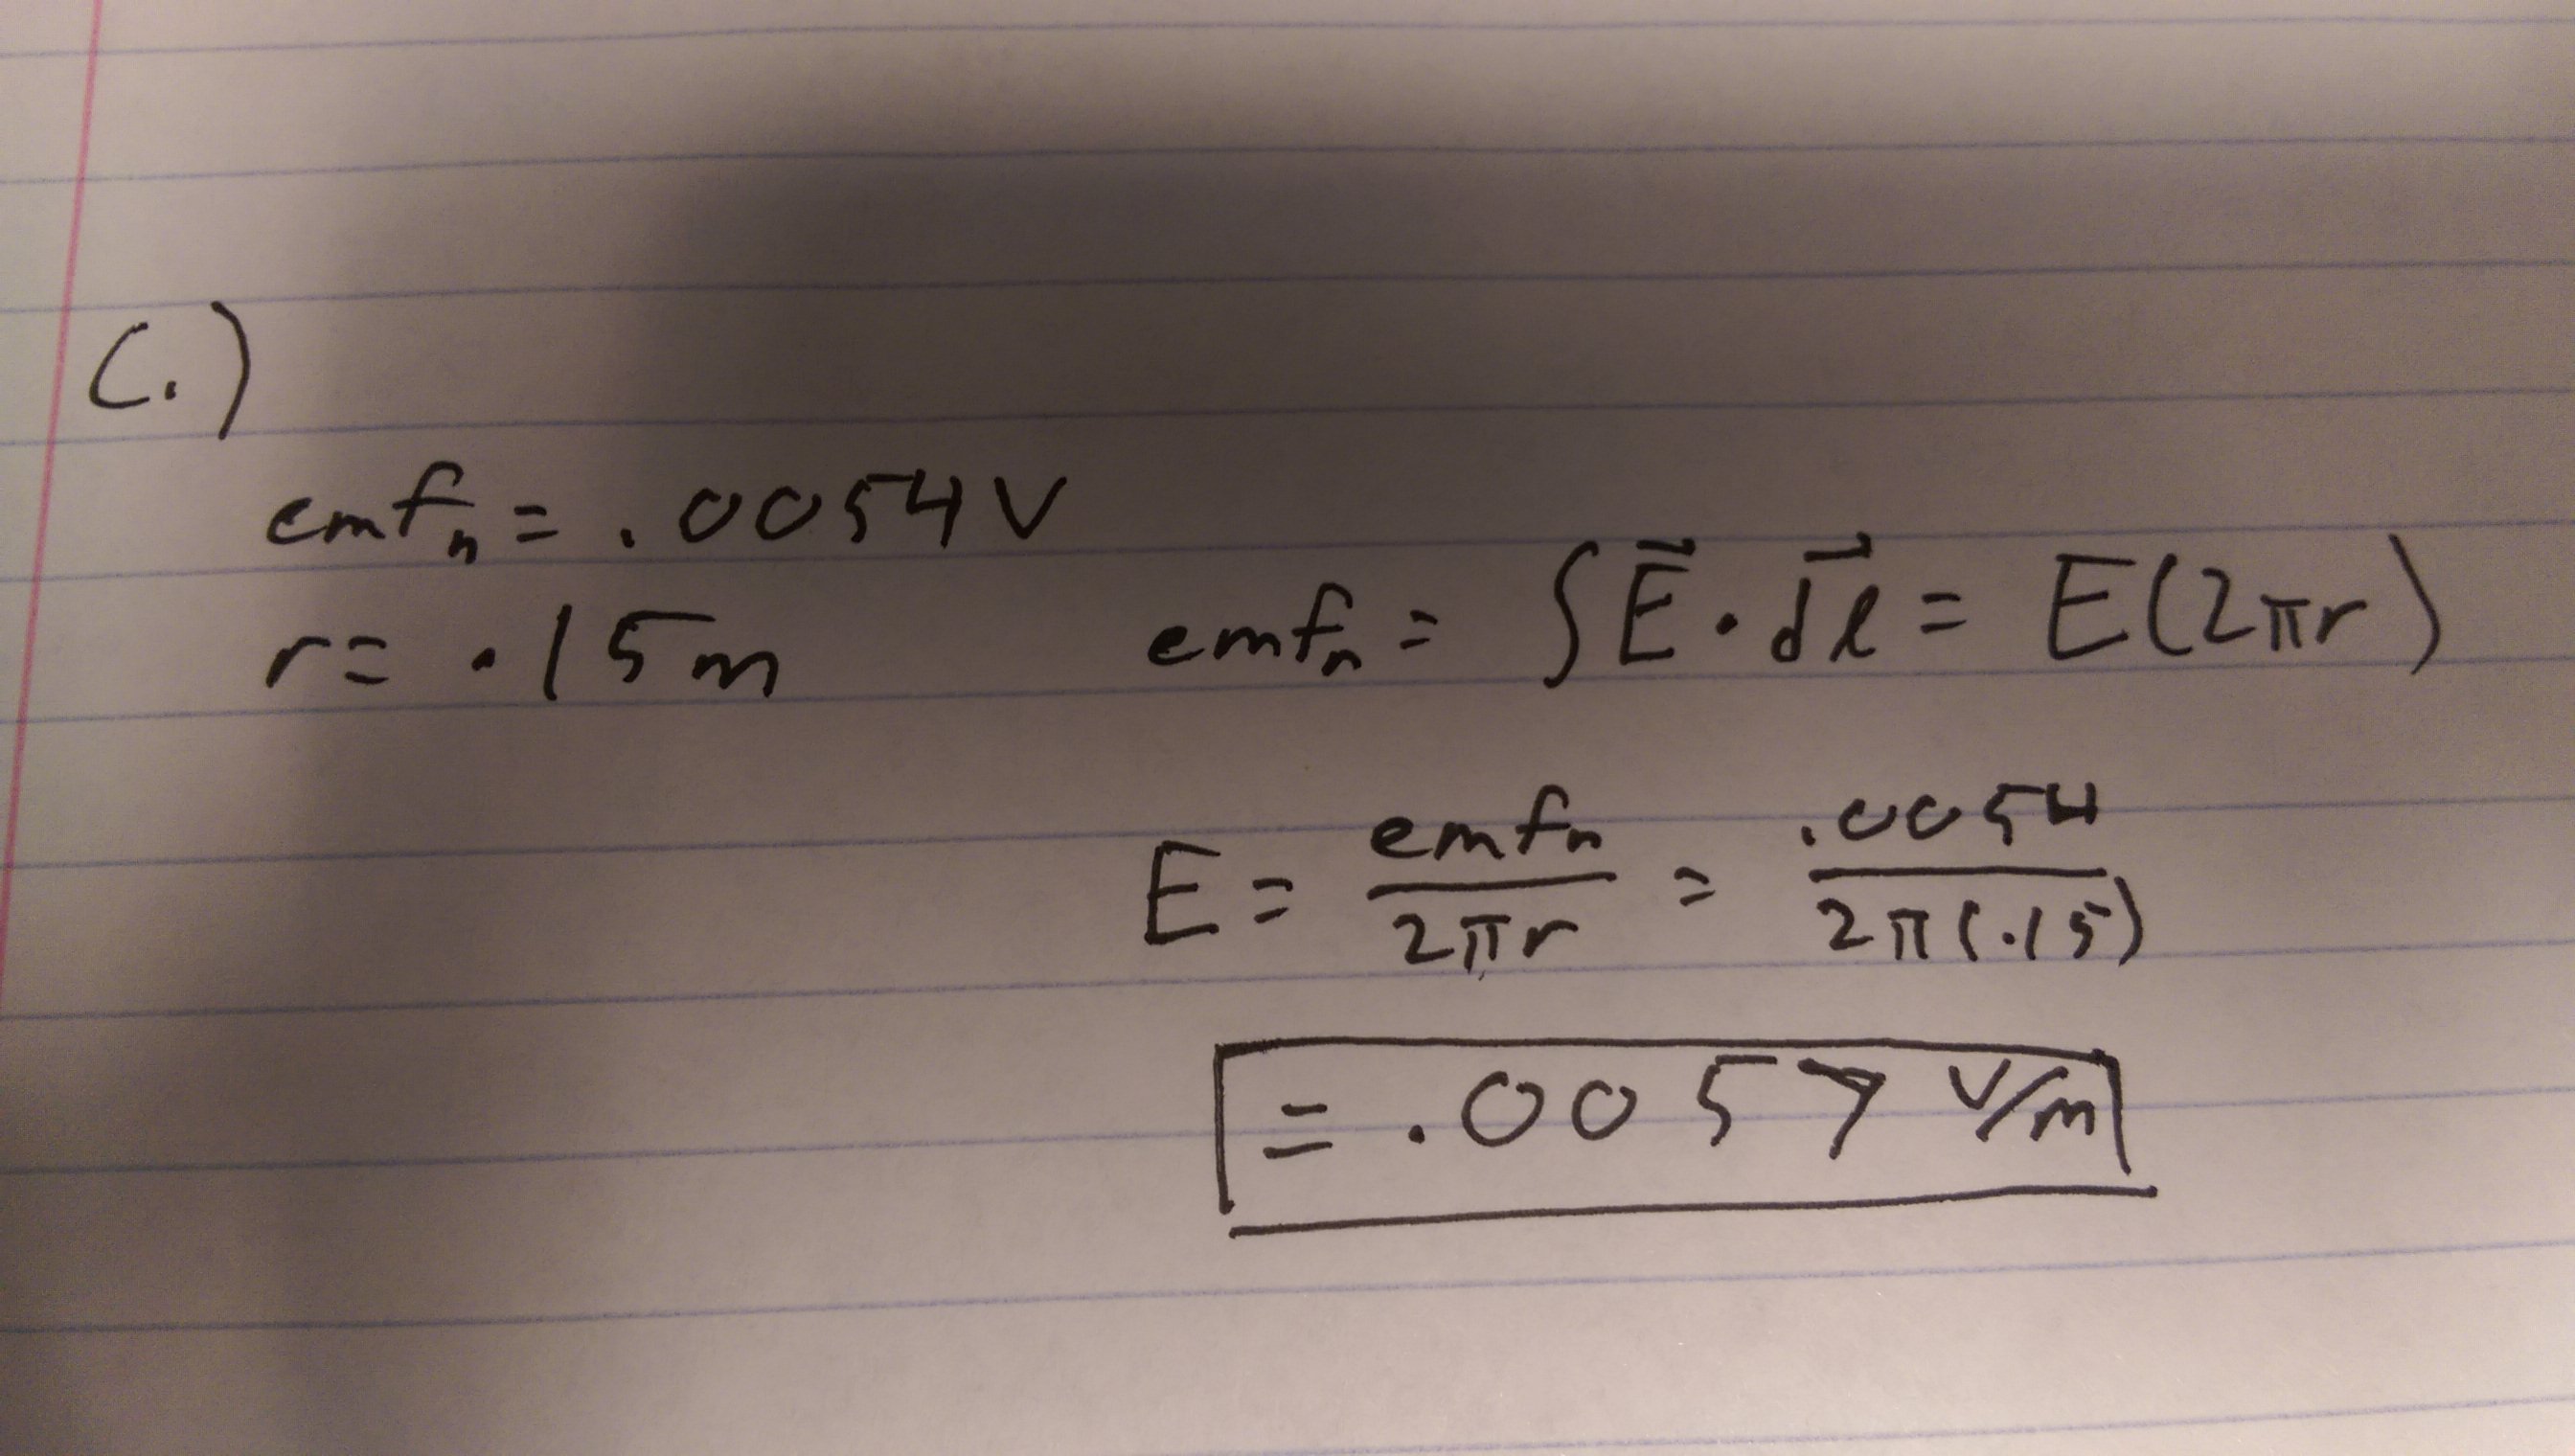 C.)
emfₙ = .0054 V
r = .15 m
emfₙ = ∫E⃗ · dl⃗ = E(2πr)
E = emfₙ / 2πr = .0054 / 2π(.15)
= .0057 V/m